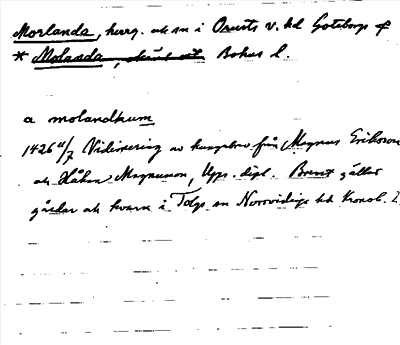 Morlanda, herrg. och sn i Orusts v. hd Göteborgs o
* Molanda, Bohus l.
a molandkum
1426 11/7 Vidimering av kungabrev från Magnus Eriksson
och Håkan Magnusson, Upps. dipl. Brevet gäller
gårdar och kvarn i Tolgs sn Norrvidinge hd Kronob. l.